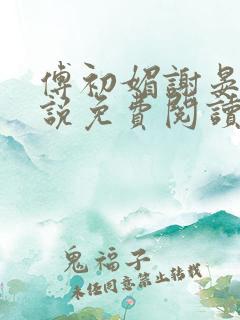 傅初媚謝晏
說免費閱讀
鬼福子
未經同意禁止轉載